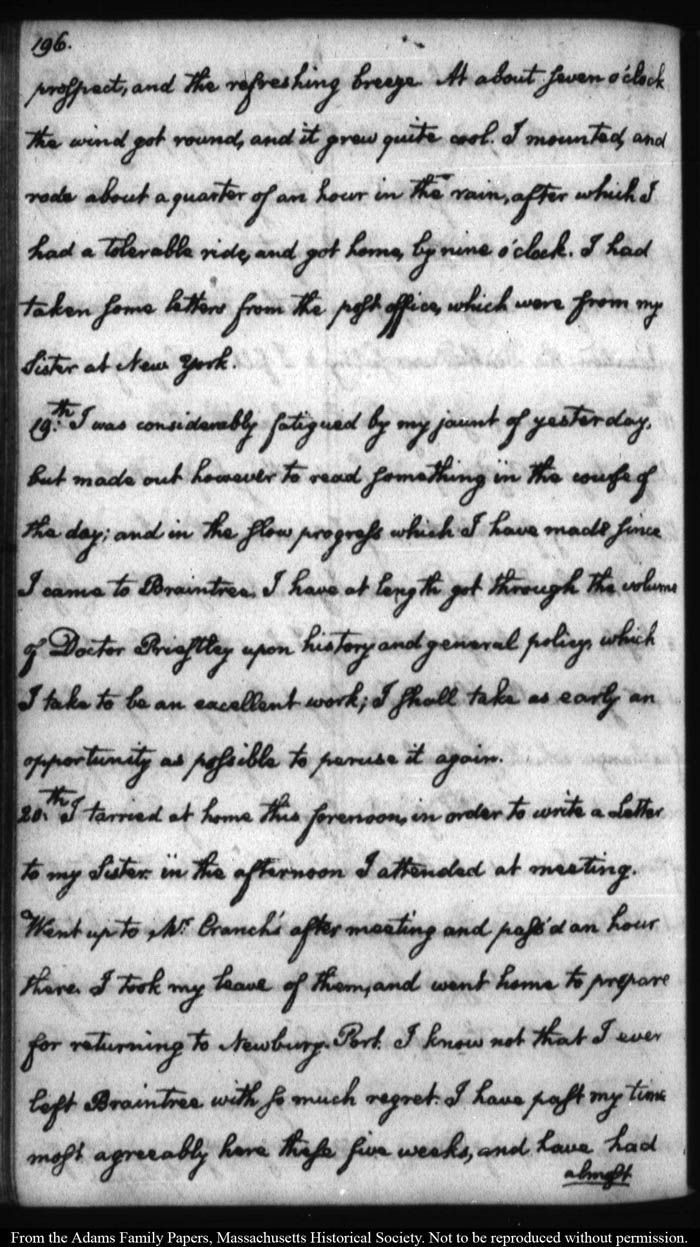 196.
prospect, and the refreshing breeze At about seven o'clock
the wind got round, and it grew quite cool. I mounted, and
rode about a quarter of an hour in the rain, after which I
had a tolerable ride, and got home, by nine o'clock. I had
taken some letters from the post office, which were from my
Sister at New York.
19.th I was considerably fatigued by my jaunt of yesterday,
but made out however to read something in the course of
the day; and in the slow progress which I have made since
I came to Braintree, I have at length got through the volume
of Doctor Priestley upon history and general policy, which
I take to be an excellent work; I shall take as early an
opportunity as possible to peruse it again.
20.th I tarried at home this forenoon, in order to write a Letter
to my Sister. in the afternoon I attended at meeting.
Went up to Mr. Cranch's after meeting and pass'd an hour
there. I took my leave of them, and went home to prepare
for returning to Newbury-Port. I know not that I ever
left Braintree with so much regret. I have past my time
most agreeably here these five weeks, and have had
almost
From the Adams Family Papers, Massachusetts Historical Society. Not to be reproduced without permission.